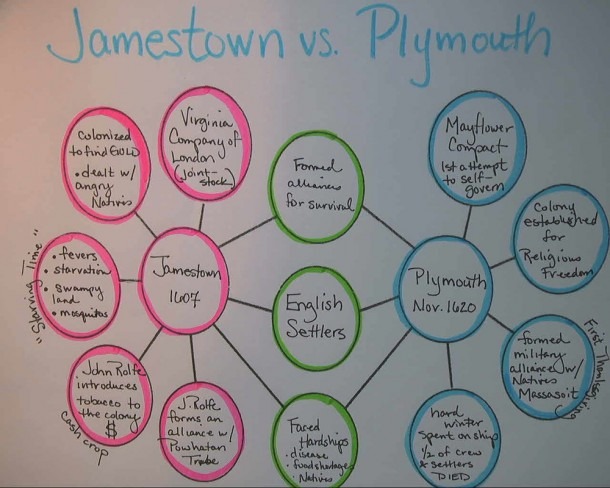 Jamestown vs. Plymouth
Colonized
to find GOLD
• dealt w/
angry
Natives
Virginia
Company of
London
(Joint-
stock)
Formed
alliances
for survival
Mayflower
Compact
1st attempt
to self-
govern
Colony
established
for
Religious
Freedom
"Starving Time"
• fevers
• starvation
• swampy
land
• mosquitos
Jamestown
1607
English
Settlers
Plymouth
Nov. 1620
formed
military
alliance w/
Natives
Massasoit
First Thanksgiving
John Rolfe
introduces
tobacco to
the colony
$
cash crop
J. Rolfe
forms an
alliance w/
Powhatan
Tribe
Faced
Hardships
• disease
• food shortages
• Natives
hard
winter
spent on ship
1/2 of crew
& settlers
DIED